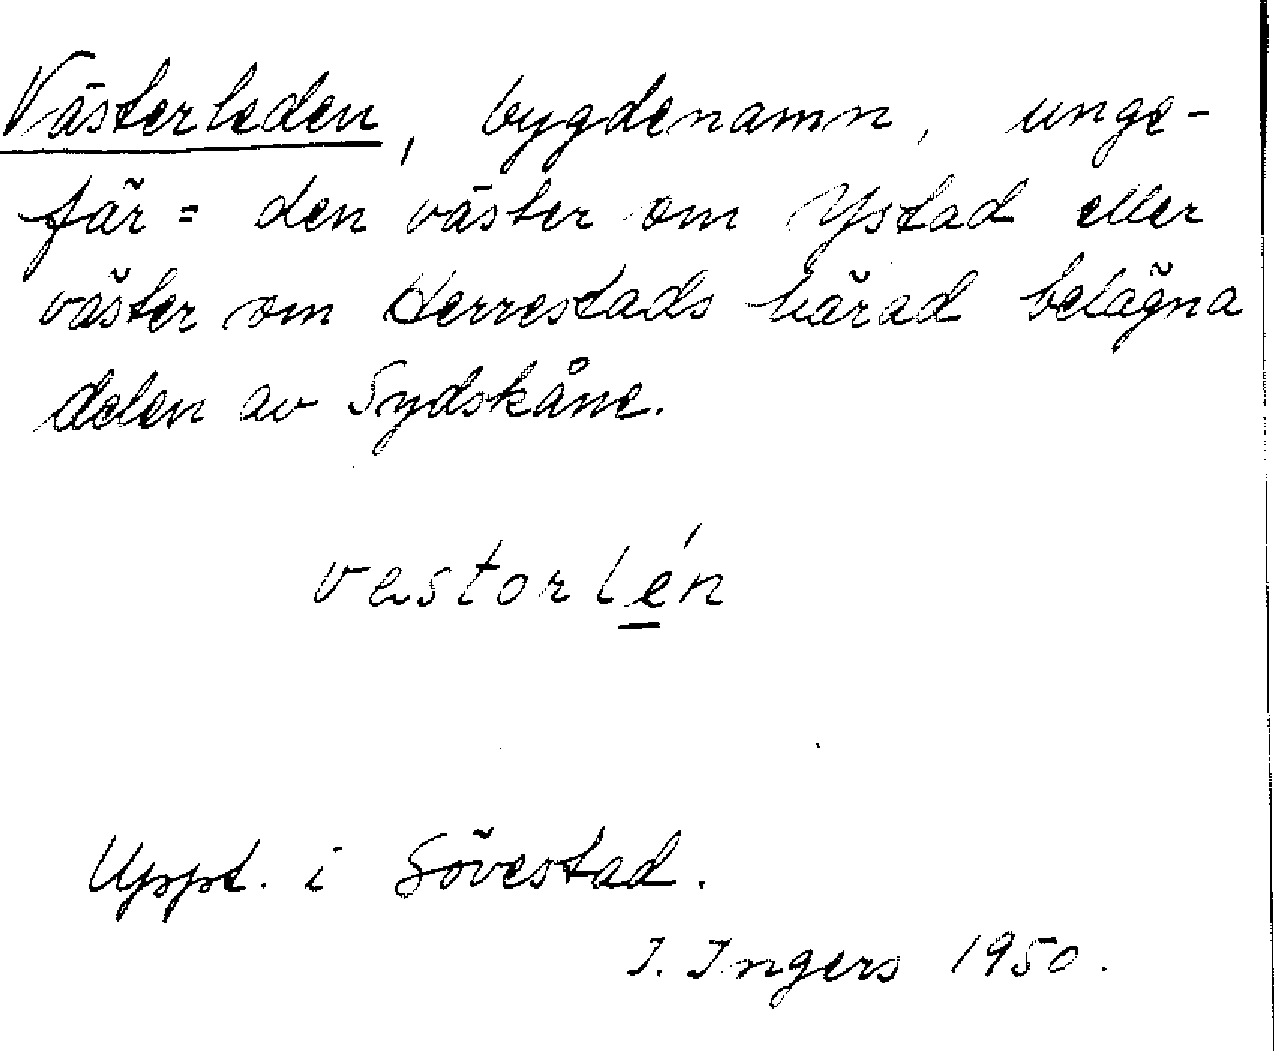 Västerleden, bygdenamn, unge-
fär = den väster om Ystad eller
väster om Herrestads härad belägna
delen av Sydskåne.
vestorlén
Uppt. i Sövestad.
I. Ingers 1950.